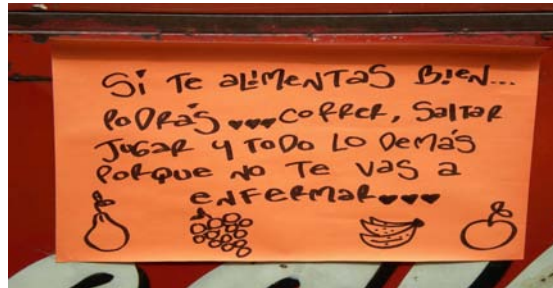 Si Te aLiMeNTas BieN...
PODRÁS ♥♥♥ CORRER, SalTaR
JUGaR y TODO LO DeMÁs
PORQUE NO Te Vas a
eNFeRMaR♥♥♥